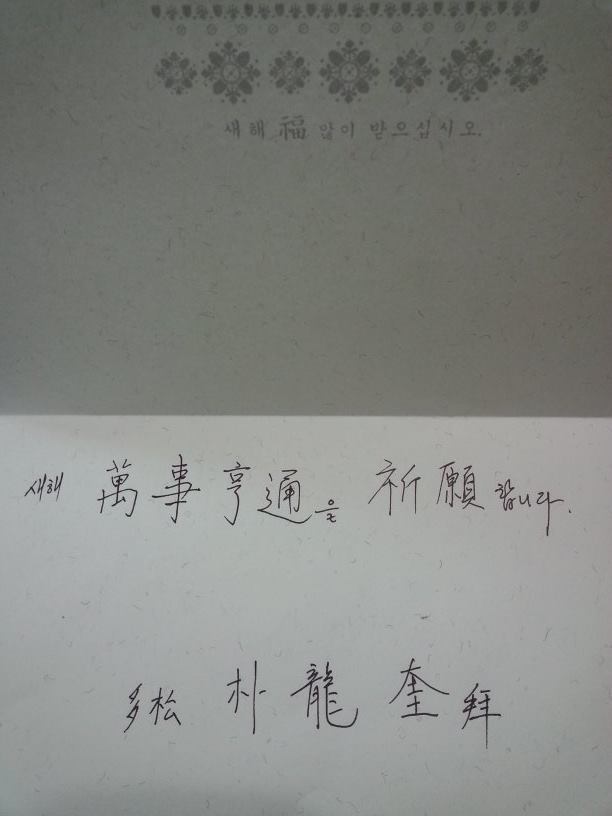 새해 福 많이 받으십시오.
새해 萬事亨通을 祈願합니다.
多松 朴龍奎 拜